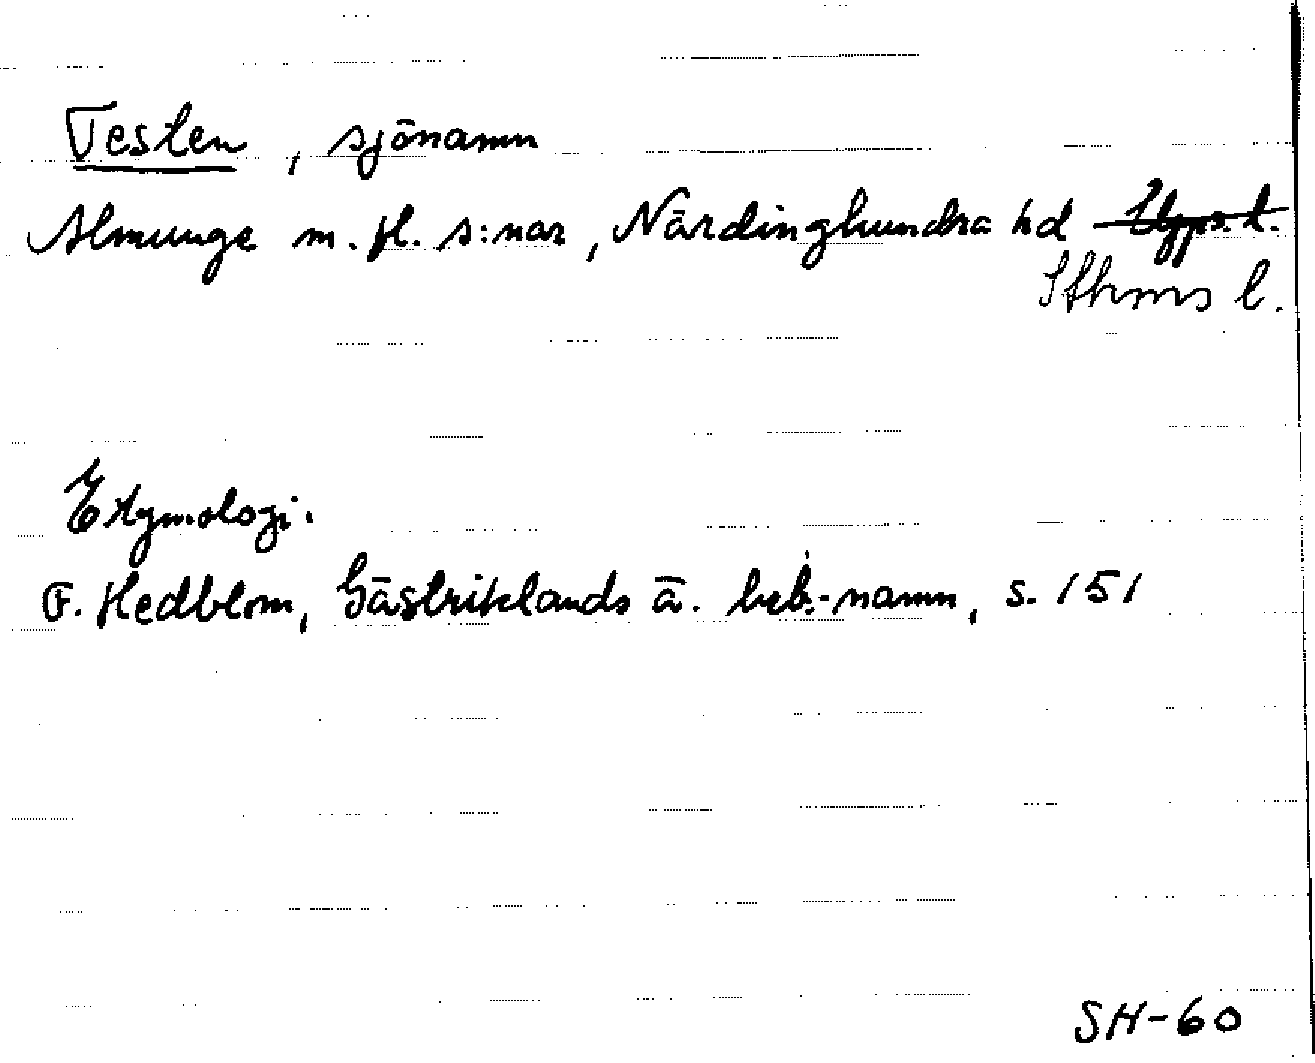 Testen, sjönamn
Almunge m. fl. s:nar, Närdinghundra hd Upps. l.
Sthms l.
Etymologi.
F. Hedblom, Gästriklands ä. beb.-namn, s. 151
SH-60